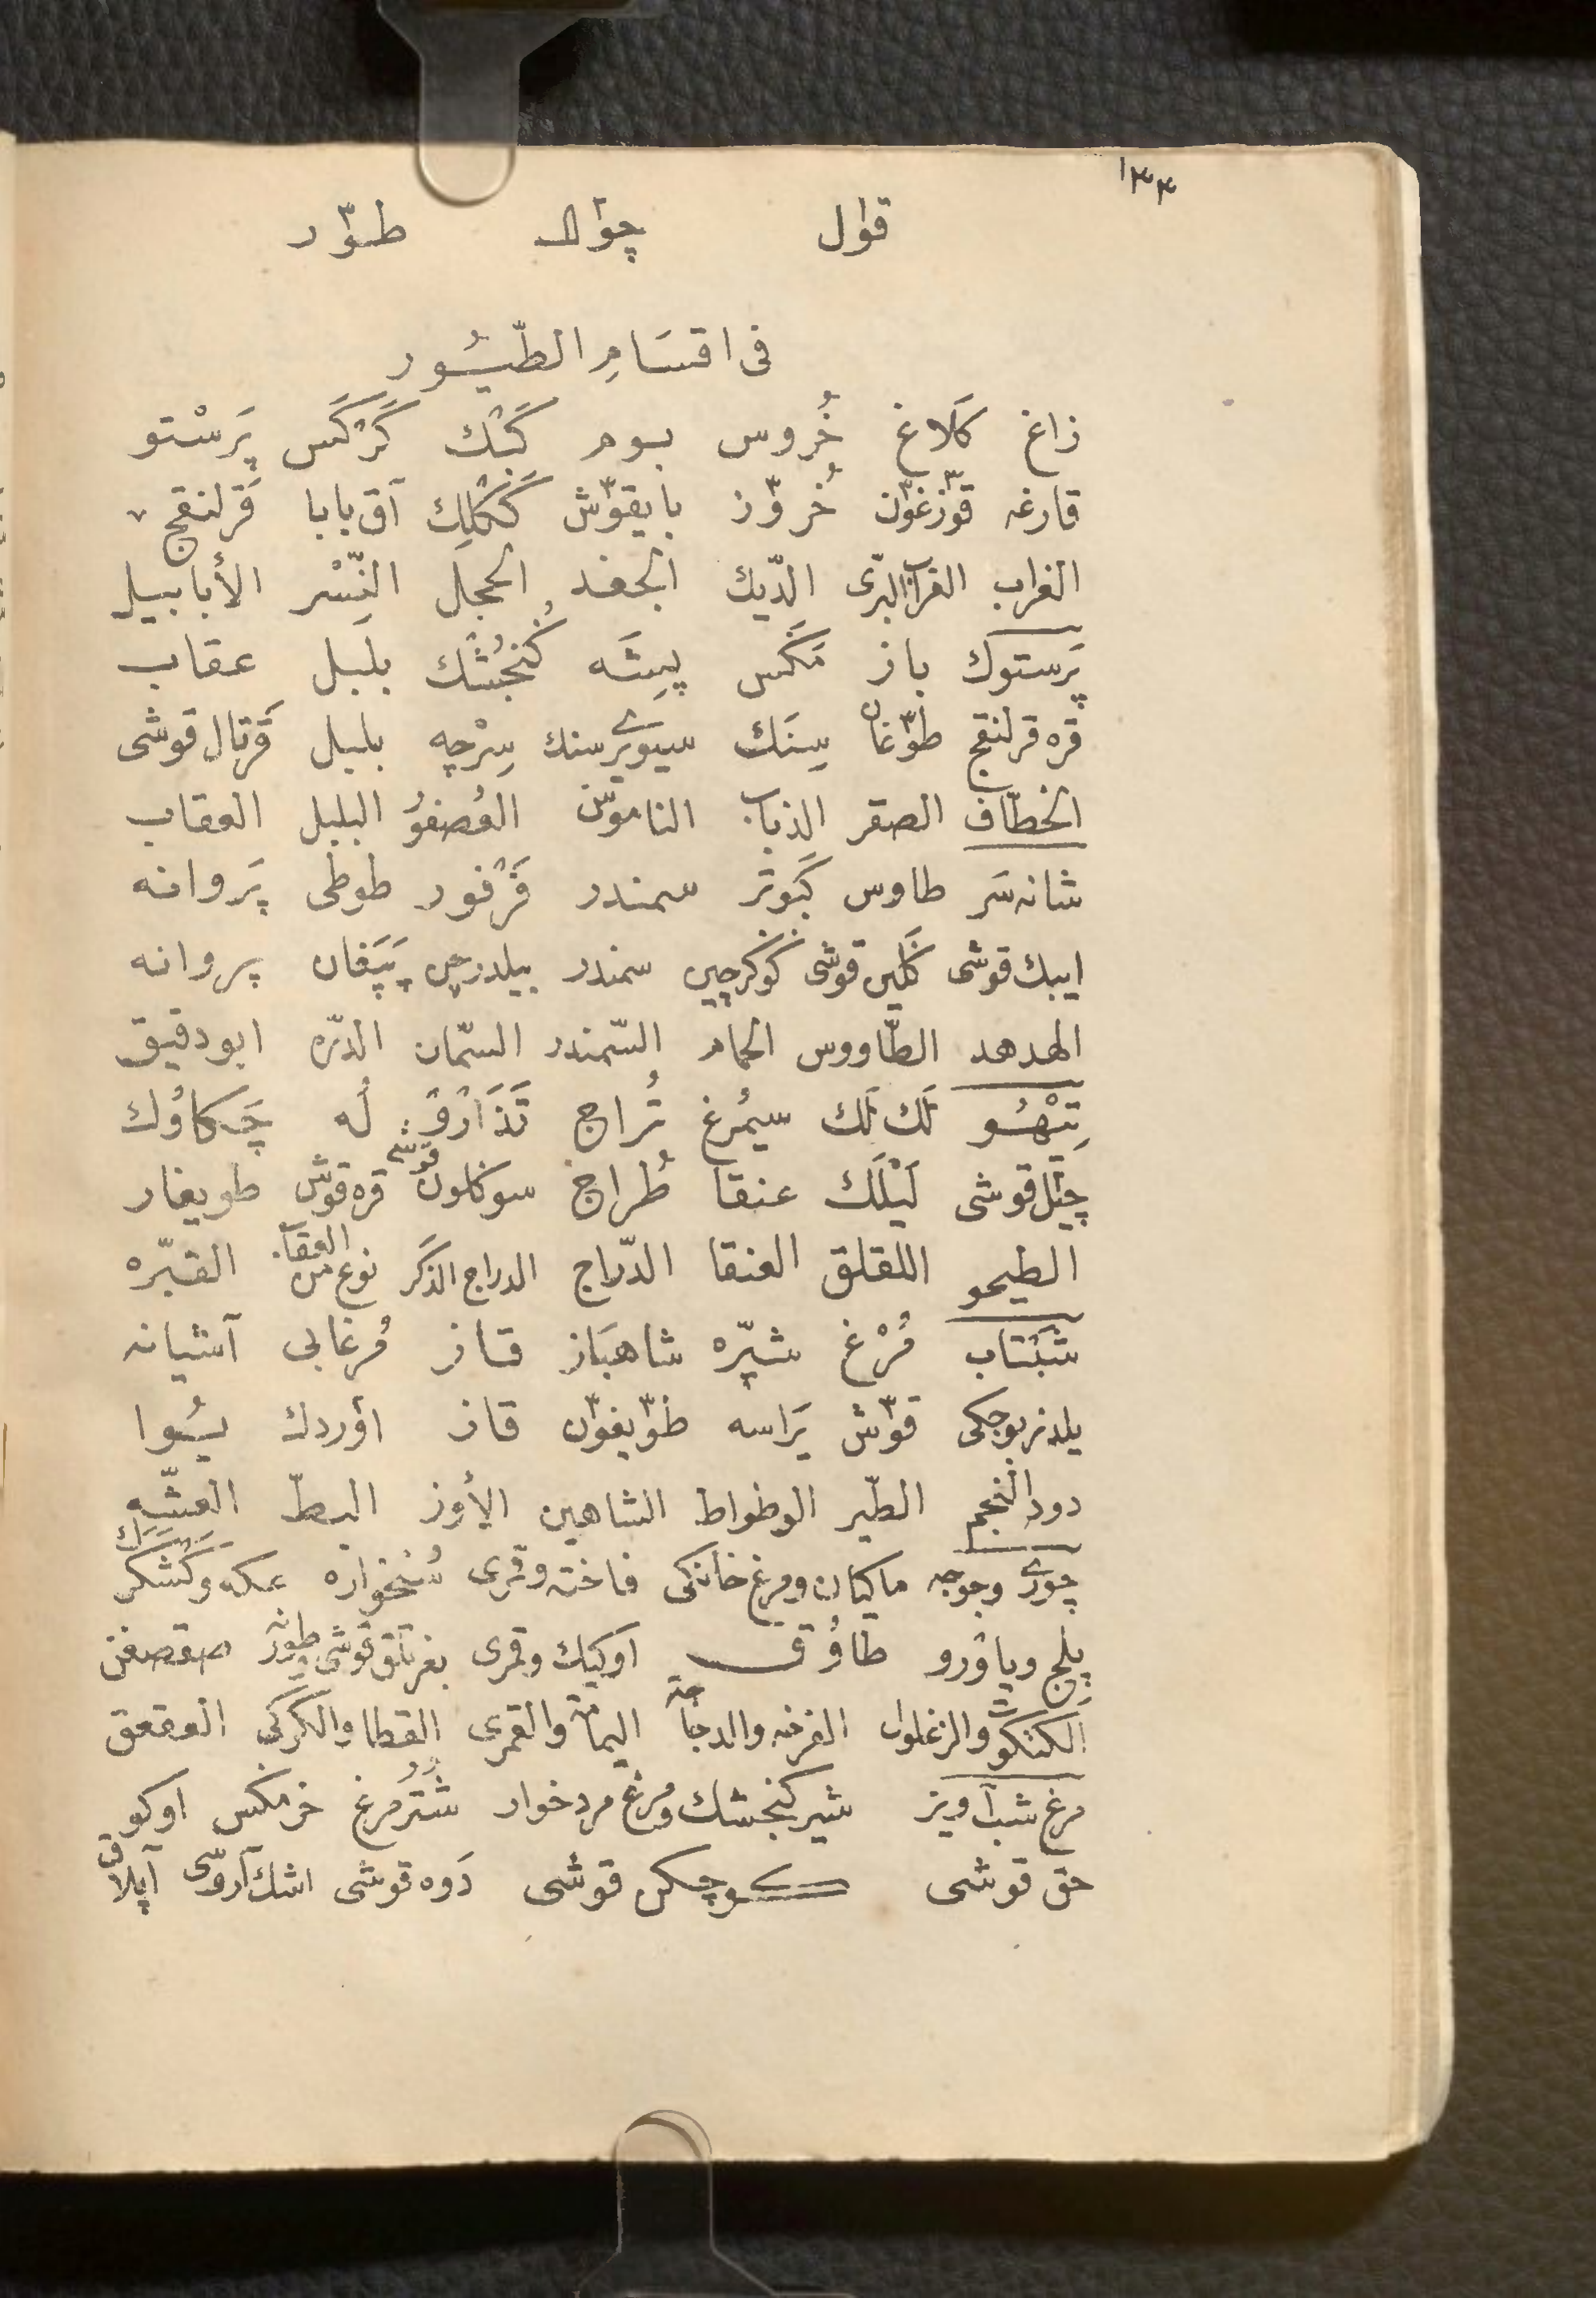 ١٣٣
قوال چوال طوّر
فى اقسَامِ الطّيُور
زاغ كَلاغ خُروس بوم كَبْك كَرْكَس پَرَسْتو
قارغه قوّزغوّن خُروّز بايقوّش كَكْلِك آق بابا قَرلنقج
الغراب الغراب البرّى الدّيك الجغد الحجَل النِّسْر الأبابيل
پَرَستوك باز مَكَس پيشَه كُنجُشْك بلبل عقاب
قره قرلنقج طوّغان سِنَك سيورى سنك سِرْچه بلبل قَرتال قوشى
الخطّاف الصقر الذباب الناموّس العُصفوُر البلبل العقاب
شانه سَر طاوس كَبوتَر سمندر فَرْفور طوطى پَروانه
ايبك قوشى كَلين قوشى كوكرچين سمندر بيلدرچين پَپَغان پروانه
الهدهد الطّاووس الحمام السّمندر السّمان الدّره ابو دقيق
تِيْهُو لَك لَك سيمُرغ تُراج تَذَارْوْ لُه چَكاوُك
چيّل قوشى لَيْلَك عنقا طُراج سوكلون قوشى قره قوّش طويغار
الطيحو اللقلق العنقا الدّراج الدراج الذكَر نوع من العقاب القبّره
شَبْتاب مُرْغ شپّره شاهبَاز قاز مُرغابى آشيانه
يلدز بوجكى قوّش يَراسه طوّيغوّن قاز اوُردك يُوا
دود النجم الطّير الوطواط الشاهين الأوز البطّ العشّه
چورى وجوجه ماكيان ومرغ خانكى فاخته وقمرى سُنخواره عكه وكَشَكَرَك
پِلج وياوْرو طاوُق اوكيك وقمرى بغرتلق قوشى وطورنه صقصغن
الكتكوّت والزغلول الفرخه والدجاجة اليمامة والقمرى القطا والكركى العقعق
مرغ شب آويز شير كنجشك ومرغ مردخوار شُتُرمرغ خرمكس اوكو
حق قوشى كوچكن قوشى دَوه قوشى اشك آروّسى آپلاق